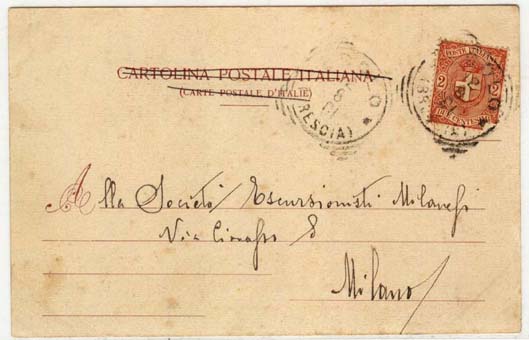 CARTOLINA POSTALE ITALIANA
(CARTE POSTALE D'ITALIE)
(BRESCIA)
POSTE ITALIANE
2 2
DUE CENTESIMI
Alla Società Escursionisti Milanesi
Via 8
Milano